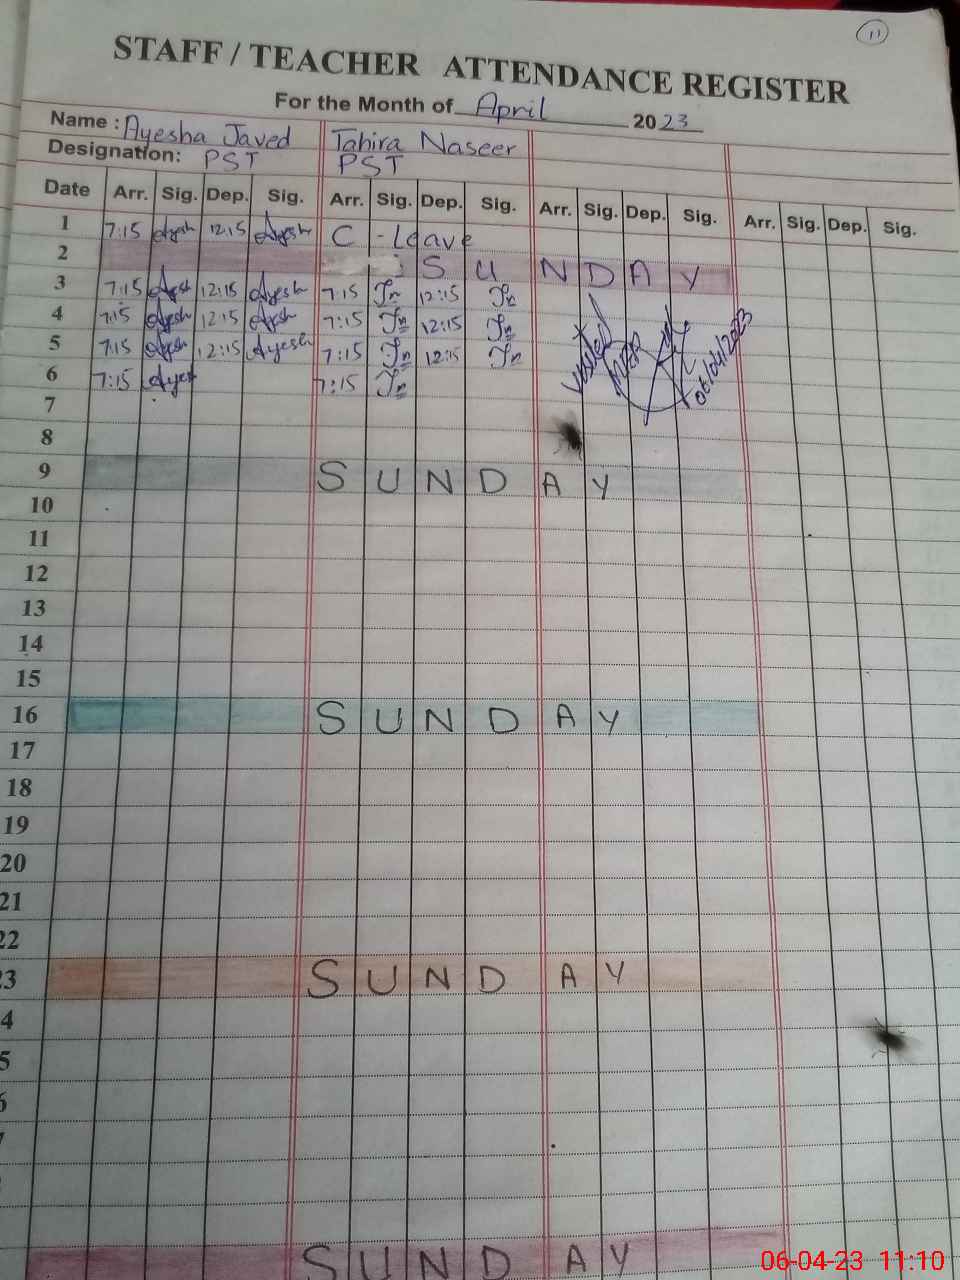 11
STAFF / TEACHER ATTENDANCE REGISTER
For the Month of April 2023
Name : Ayesha Javed Tahira Naseer
Designation: PST PST
Date Arr. Sig. Dep. Sig. Arr. Sig. Dep. Sig. Arr. Sig. Dep. Sig. Arr. Sig. Dep. Sig.
1 7:15 Ayesh 12:15 Ayesh C - Leave
2 SUNDAY
3 7:15 Ayesh 12:15 Ayesh 7:15 Tn 12:15 Tn
4 7:15 Ayesh 12:15 Ayesh 7:15 Tn 12:15 Tn
5 7:15 Ayesh 12:15 Ayesh 7:15 Tn 12:15 Tn
6 7:15 Ayesh 7:15 Tn
Visited
06/04/2023
7
8
9 SUNDAY
10
11
12
13
14
15
16 SUNDAY
17
18
19
20
21
22
3 SUNDAY
4
5
6
7
SUNDAY
06-04-23 11:10